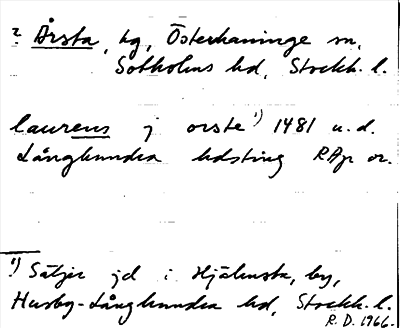 ? Årsta, hg, Österhaninge sn,
Sotholms hd, Stockh. l.
laurens j orste¹) 1481 u.d.
Långhundra hdsting RAp or.
¹) Säljer jd i Hjälmsta, by,
Husby-Långhundra hd, Stockh. l.
R. D. 1966.